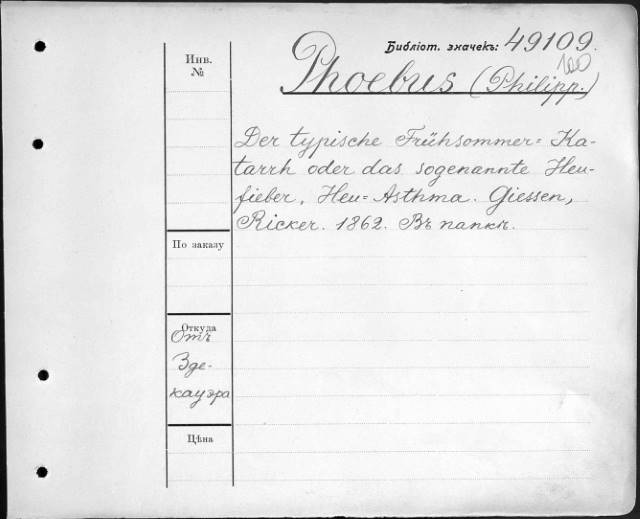 Библіот. значекъ: 49109.
100
Инв.
№
Phoebus (Philipp.)
Der typische Frühsommer= Ka-
tarrh oder das sogenannte Heu-
fieber, Heu= Asthma. Giessen,
Ricker. 1862. Въ папкѣ.
По заказу
Откуда
Отъ
Зде-
кауэра
Цѣна